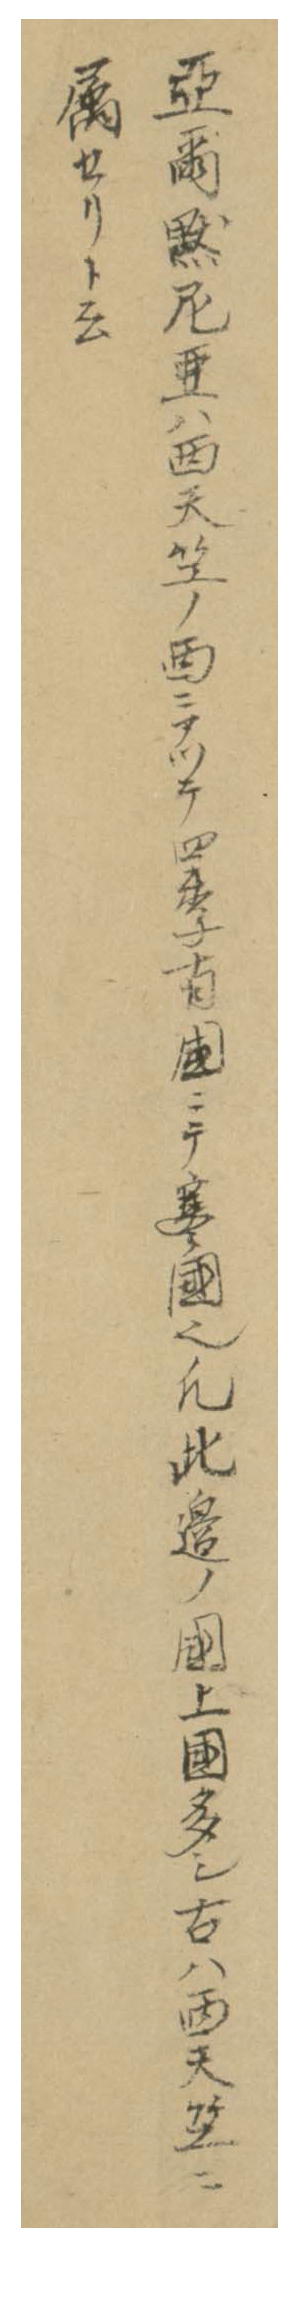 亞爾黙尼亜ハ西天竺ノ西ニアツテ四季有國ニテ寒國也凡此邉ノ國上國多シ古ハ西天竺ニ
属セリト云